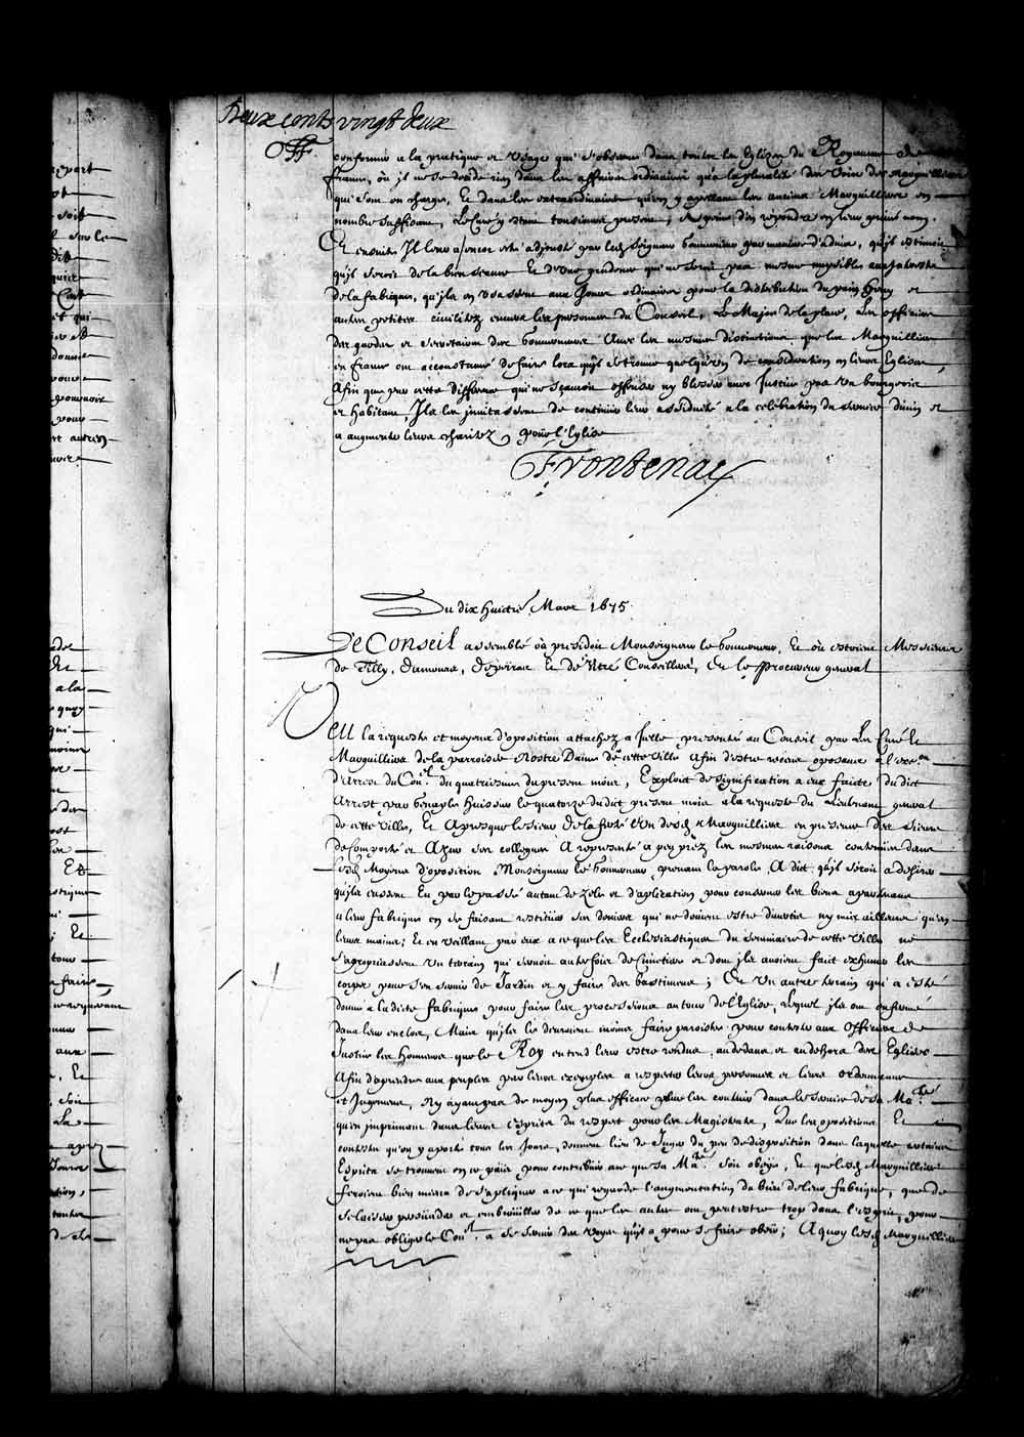 Deux cents vingt deux
conforme a la pratique et usage qui s'observe dans toutes les Eglises du Royaume de
france, où il ne se decide rien dans les affaires ordinaires qu'a la pluralité des Voix des marguilliers
qui sont en charge, Et dans les extraordinaires qu'en y apellant les anciens Marguilliers en
nombre suffisant, Le Curé y estant tousiours present, A peine d'en repondre en leurs propres noms.
Et ensuite Il leur a encore esté adjousté par led. Seigneur Gouverneur par maniere d'advis, qu'il estimoit
qu'il seroit de la bien seance Et d'une prudence qui ne seroit pas mesme nuysible aux Interests
de la fabrique, qu'ils en usassent aux Jours ordinaires pour la distribution du pain beny et
autres petites civilitez envers les personnes du Conseil, Le Major de la place, Les officiers
des gardes et Secretaires des Gouverneurs Avec les mesmes distinctions que les Marguilliers
en france ont accoustumé de faire lors qu'il se trouve quelqu'un de consideration en leurs Eglises,
Afin que par cette difference qui ne scauroit offenser ny blesser avec Justice pas un bourgeois
et habitant, Ils les invitassent de continuer leur assiduité a la celebration du service divin et
a augmenter leurs charitez pour l'Eglise
Frontenac
Du dix huictie. Mars 1675.
Le Conseil assemblé où presidoit Monseigneur le Gouverneur, Et où estoient Messieurs
de Tilly, Damours, Dupont Et de Vitré Conseillers, Et le Procureur general
Veu la requeste et moyens d'oposition attachez a Icelle presenté au Conseil par Les Curé Et
Marguilliers de la parroisse Nostre Dame de cette Ville Afin d'estre receus oposans a l'exe.on
d'Arrest du Con.l du quatriesme du present mois, Exploit de signification a eux faicte dudict
Arrest par Genaple Huissier le quatorze dudict present mois a la requeste du Lieutenant general
de cette Ville, Et Apres que le sieur de la ferté L'un desd. Marguilliers en presence des Sieurs
de Comporté et Azur ses collegues A representé a peu prez les mesmes raisons contenues dans
lesd. Moyens d'oposition Monseigneur le Gouverneur prenant la parole, A dict qu'il seroit a desirer
qu'ils eussent Eu par le passé autant de zele et d'aplication pour conserver les biens apartenans
a leur fabrique en se faisant restituer les deniers qui ne doivent estre divertis ny mis ailleurs qu'en
leurs mains; Et en veillant par eux a ce que les Ecclesiastiques du Seminaire de cette Ville ne
s'apropriassent Un terrain qui servoit autrefois de Cimetiere et dont ils avoient faict exhumer les
corps pour s'en servir de Jardin et y faire des bastimens; Et Un autre terrain qui a esté
donné a ladicte fabrique pour faire les processions autour de l'Eglise, Lequel ils ont enfermé
dans leur enclos, Mais qu'ils le devroient moins faire paroistre pour contester aux Officiers de
Justice les honneurs que le Roy entend leur estre rendus au dedans et au dehors des Eglises
Afin d'aprendre aux peuples par leurs exemples a respecter leurs personnes et leurs ordonnances
et Jugemens, N'y ayant pas de moyen plus efficace pour les contenir dans le service de Sa Ma.té
qu'en imprimant dans leurs Esprits du respect pour les Magistrats, Que les opositions Et
conteste qu'on y aporte tous les Jours, donnent lieu de Juger du peu de disposition dans laquelle certains
Esprits se trouvent en ce païs pour contribuer a ce que Sa Ma.té soit obeye, Et que lesd. Marguilliers
feroient bien mieux de s'apliquer a ce qui regarde l'augmentation du bien de leur fabrique, que de
se laisser persuader et embroüiller de ce que les autres ont peut estre trop dans l'esprit, pour
ne pas obliger le Con.l a se servir des voyes qu'il a pour se faire obeir; A quoy lesd. Marguilliers